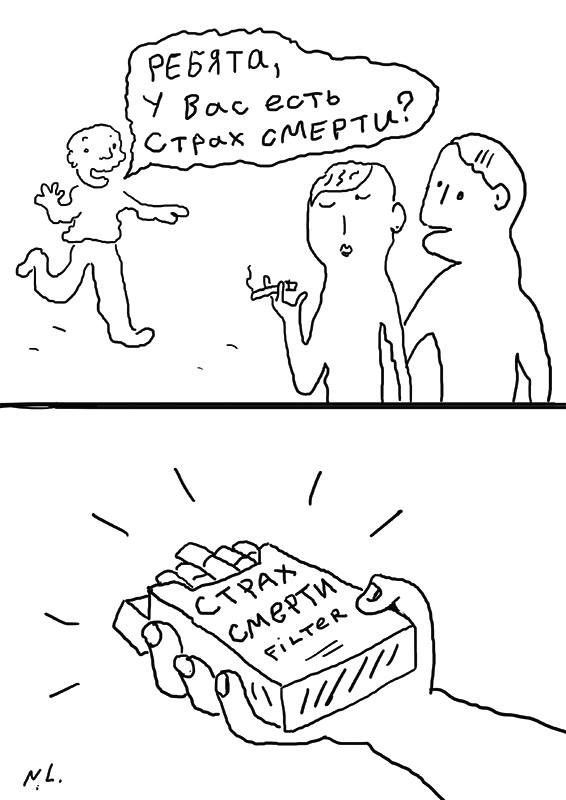 РЕБЯТА,
У Вас есть
СТРах СМЕРТИ?
СТРАХ
СМЕРТИ
FiLTER
N.L.